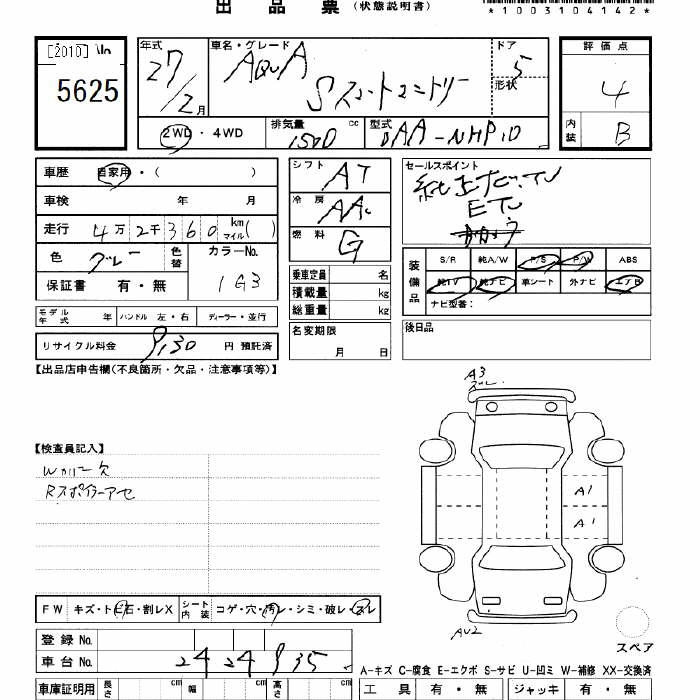 出品票 (状態説明書)
*1003104142*
[2010] 1/10
5625
年式 27/2月
車名・グレード AQUA Sスマートエントリー
ドア 5
形状
評価点 4
内装 B
2WD・4WD
排気量 1500 cc
型式 DAA-NHP10
車歴 自家用・( )
車検 年 月
走行 4万2千360 km マイル( )
色 グレー 色替
カラーNo. 1G3
保証書 有・無
モデル年式 年 ハンドル 左・右 ディーラー・並行
リサイクル料金 9,130 円 預託済
シフト AT
冷房 AAC
燃料 G
乗車定員 名
積載量 kg
総重量 kg
名変期限 月 日
セールスポイント
純正ナビ・TV
ETC
装備品
S/R 純A/W P/S P/W ABS
純TV 純ナビ 革シート 外ナビ エアB
ナビ型番:
後日品
【出品店申告欄(不良箇所・欠品・注意事項等)】
A3
ズレ
【検査員記入】
Wカバー欠
Rスポイラーアセ
A1
A1
AU2
スペア
FW キズ・トビ石・割レX シート内装 コゲ・穴・汚レ・シミ・破レ・スレ
登録No.
車台No. 2424935
A-キズ C-腐食 E-エクボ S-サビ U-凹ミ W-補修 XX-交換済
車庫証明用 長さ cm 幅 cm 高さ cm
工具 有・無 ジャッキ 有・無